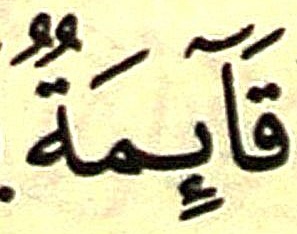 قَآئِمَةٌ